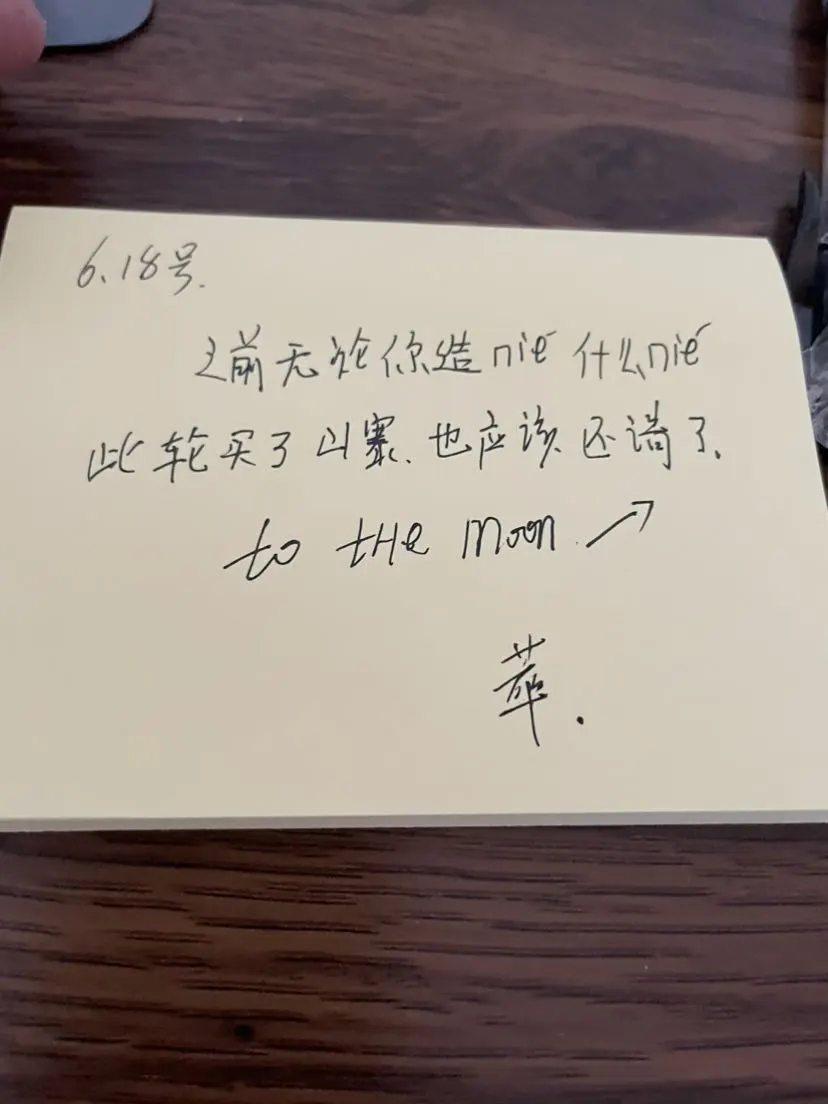 6.18号.
之前无论你造nié 什么nié
此轮买了山寨.也应该还清了.
to tHe moon.↗
苹.